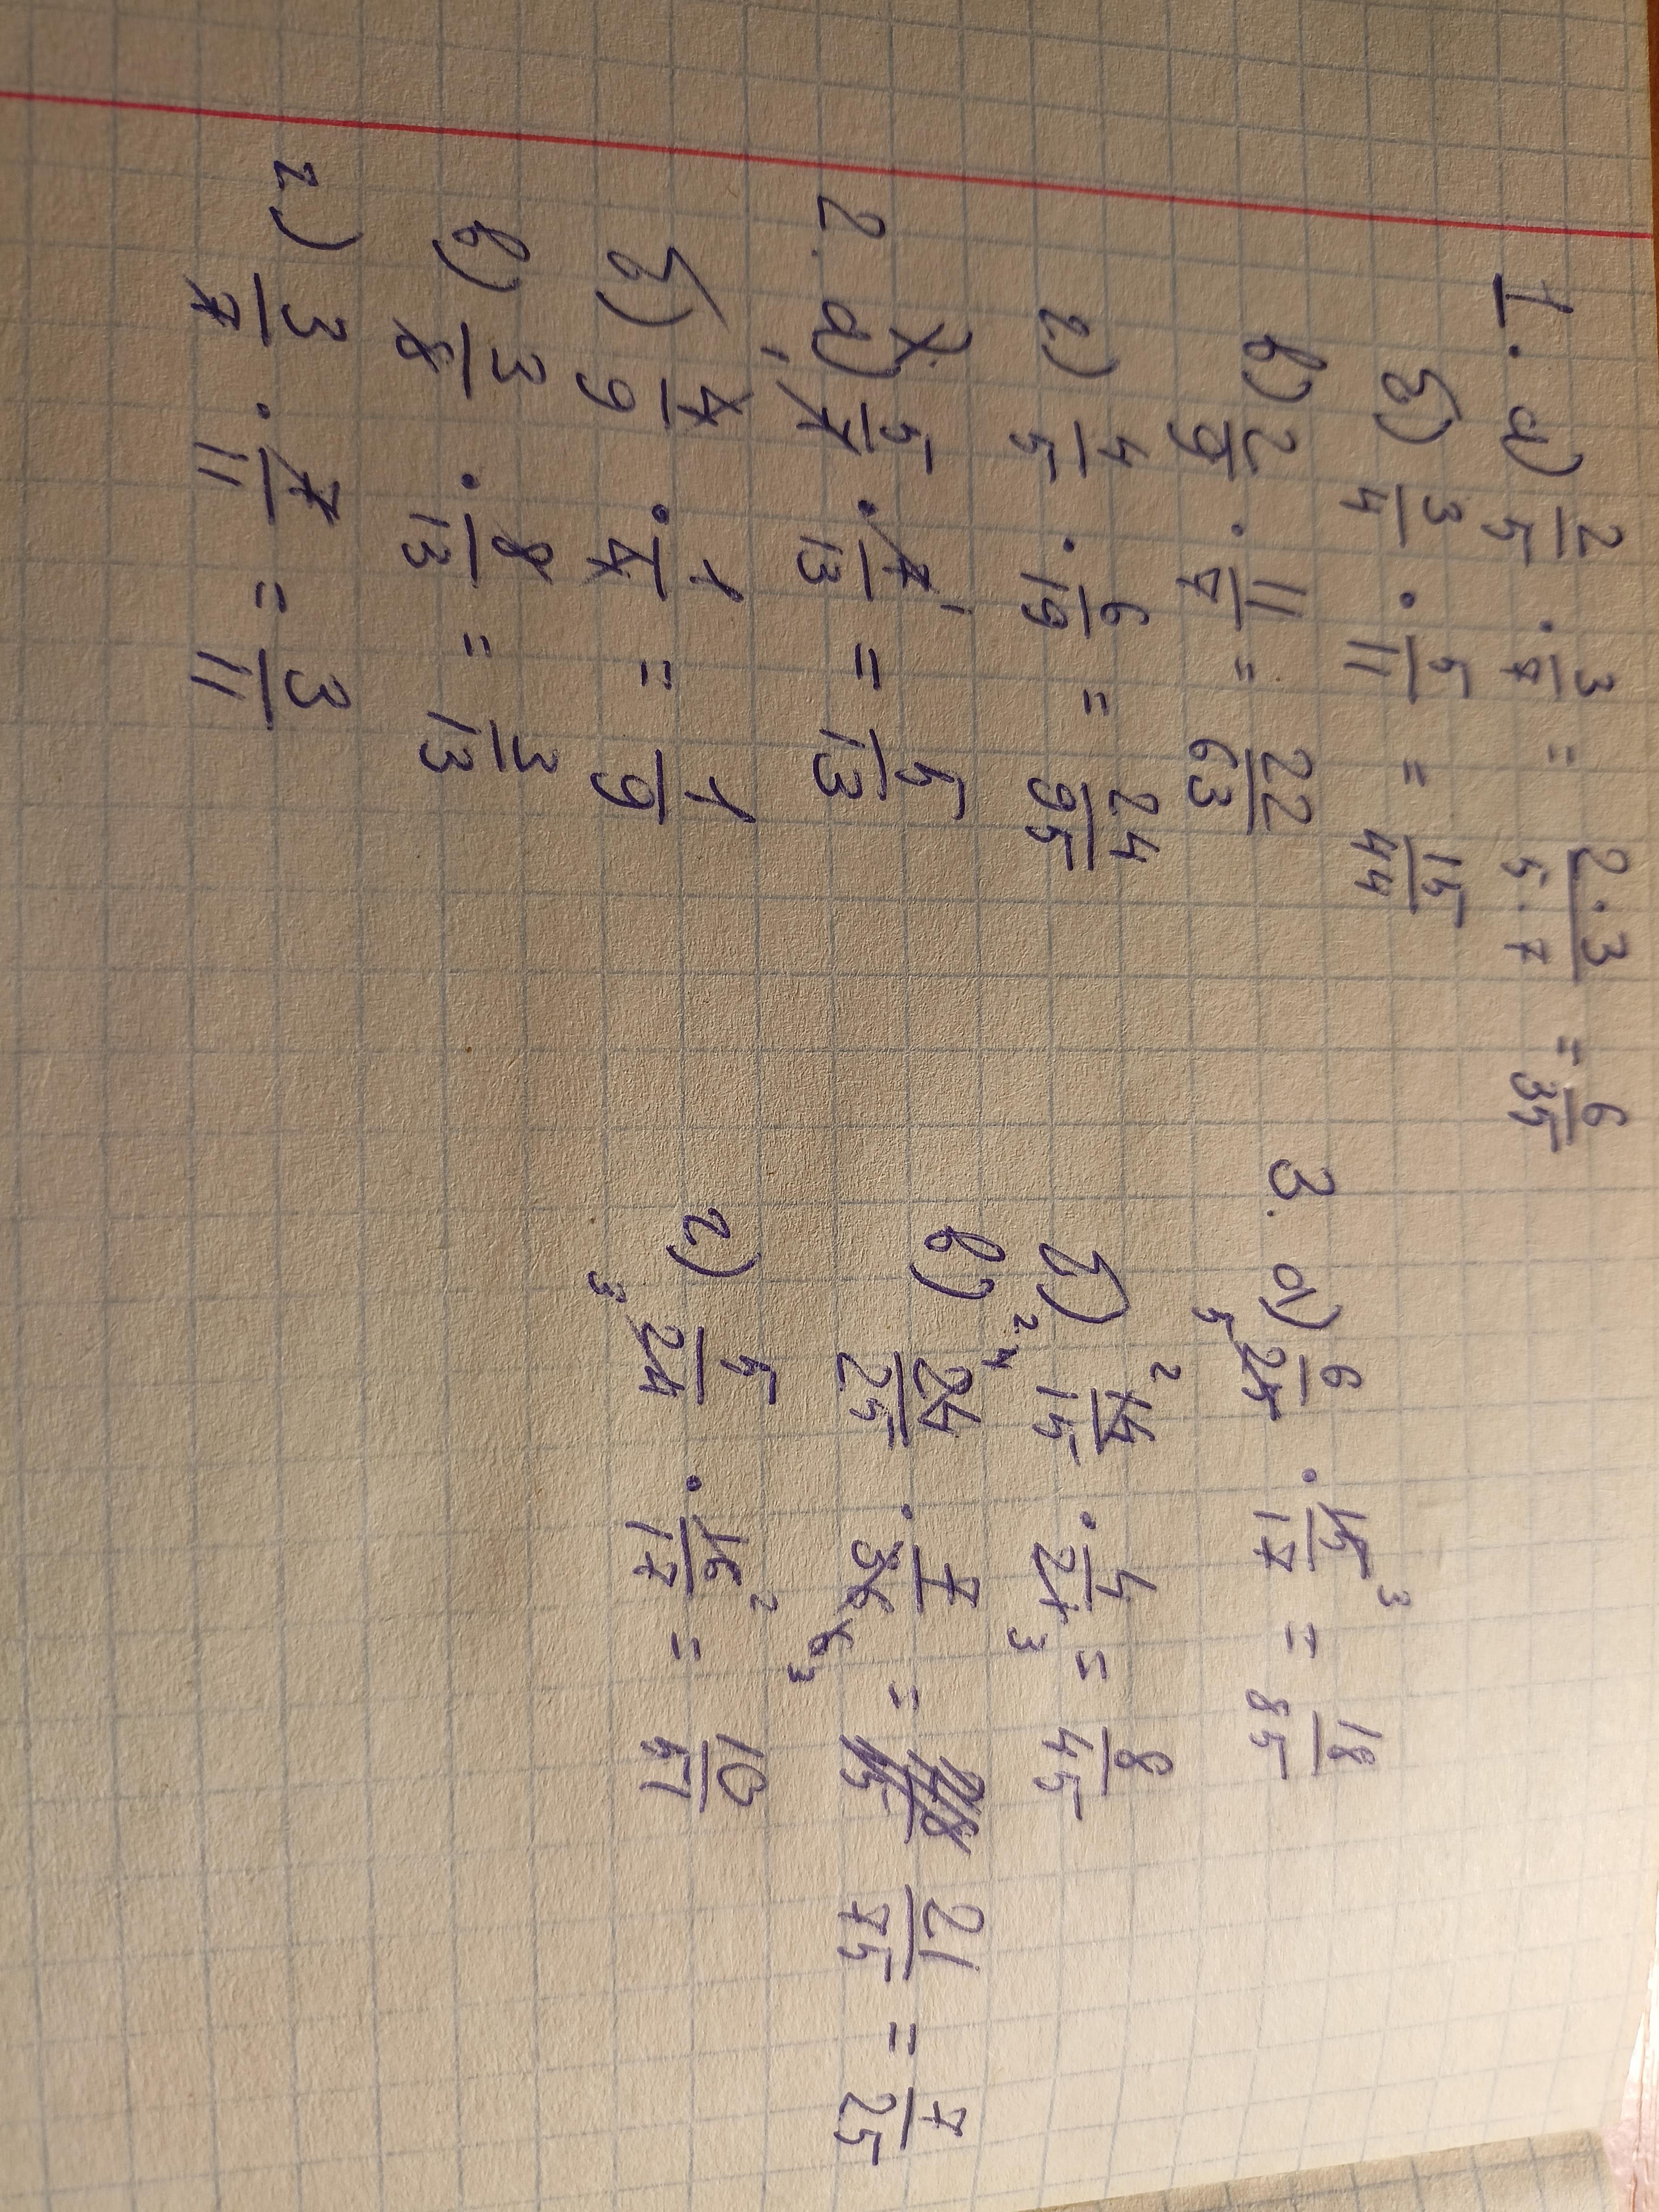 1. а) 2/5 · 3/7 = 2·3/5·7 = 6/35
б) 3/4 · 5/11 = 15/44
в) 2/9 · 11/7 = 22/63
г) 4/5 · 6/19 = 24/95
2. а) 5/7 · 7/13 = 5/13
б) 7/9 · 1/7 = 1/9
в) 3/8 · 8/13 = 3/13
г) 3/7 · 7/11 = 3/11
3. а) 6/25 5 · 15/17 3 = 18/85
б) 2 14/15 · 4/21 3 = 8/45
в) 2 4 24/25 · 7/36 6 3 = 21/75 = 7/25
г) 3 5/24 · 16/17 2 = 10/51